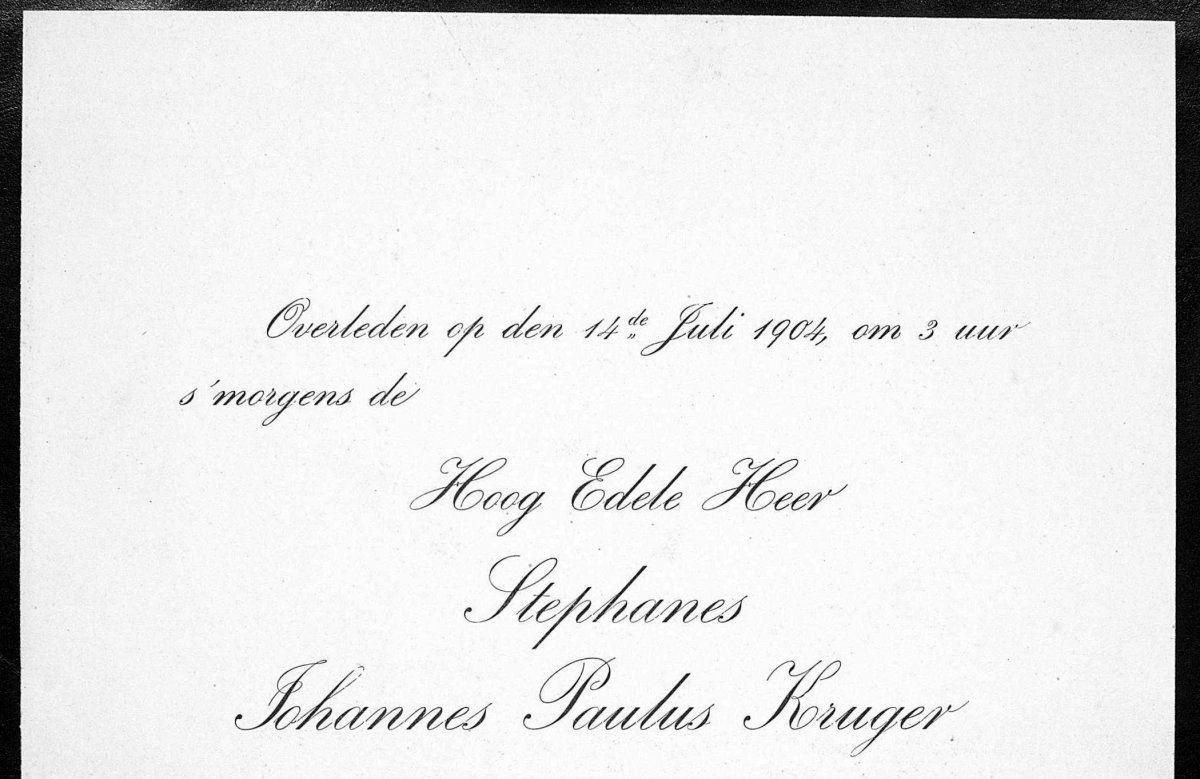 Overleden op den 14de Juli 1904, om 3 uur
s'morgens de
Hoog Edele Heer
Stephanes
Johannes Paulus Kruger